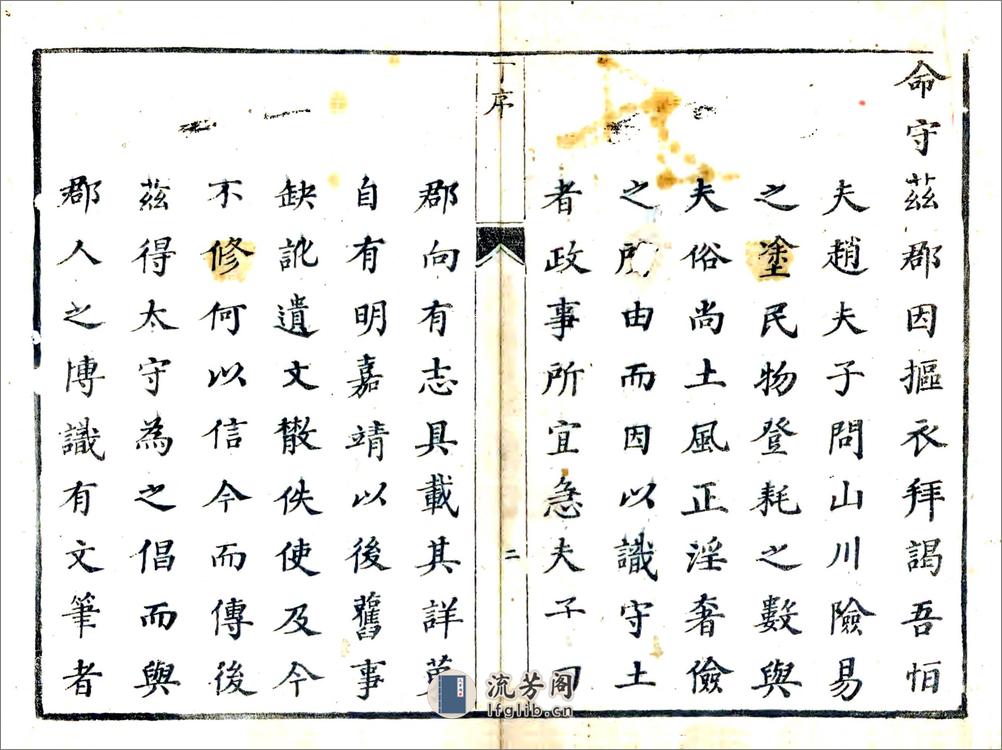 命守茲郡因摳衣拜謁吾怕
夫趙夫子問山川險易
之塗民物登耗之數與
夫俗尚土風正淫奢儉
之所由而因以識守土
者政事所宜急夫子曰
丁序
二
郡向有志具載其詳第
自有明嘉靖以後舊事
缺訛遺文散佚使及今
不修何以信今而傳後
茲得太守為之倡而與
郡人之博識有文筆者
流芳阁
lfglib.cn